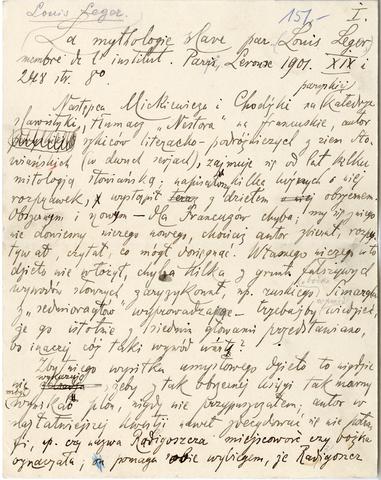 Louis Leger. 15/- I.
La mythologie slave par Louis Leger
membre de l'institut. Paris, Leroux 1901. XIX i
248 str. 8º
paryskiej
Następca Mickiewicza i Chodźki na katedrze
słowiańskiej, tłumacz „Nestora" na francuskie, autor
szkiców literacko-podróżniczych z ziem sło-
wiańskich (w dwuch serjach), zajmuje się od lat kilku
mitologią słowiańską; napisawszy kilka luźnych o niej
rozprawek, wystąpił z dziełem obszernem.
Obszernem i nowem — dla Francuzów chyba; my się z niego
nie dowiemy niczego nowego, chociaż autor zbierał, rozpy-
tywał, czytał co mógł dosięgnąć. Własnego niczego w to
dzieło nie włożył, chyba kilka z gruntu fałszywych
wywodów słownych, zaryzykował, np. ruskiego Simargła
z „sedmorogłow" wyprowadzając — trzebaby wiedzieć,
że go istotnie o siedmiu głowach przedstawiano,
bo inaczej cóż taki wywód wart?
Zbytniego wysiłku umysłowego dzieło to nigdzie
nie wykazuje żeby tak obszernej księgi tak marny
miał wynikać plon, nigdy nie przypuszczałem; autor w
najłatwiejszej kwestji nawet zdecydować się nie potra-
fi, np. czy nazwa Radigoszcza miejscowość czy bożka
oznaczała; on pomaga sobie wybiegiem, że Radigoszcz